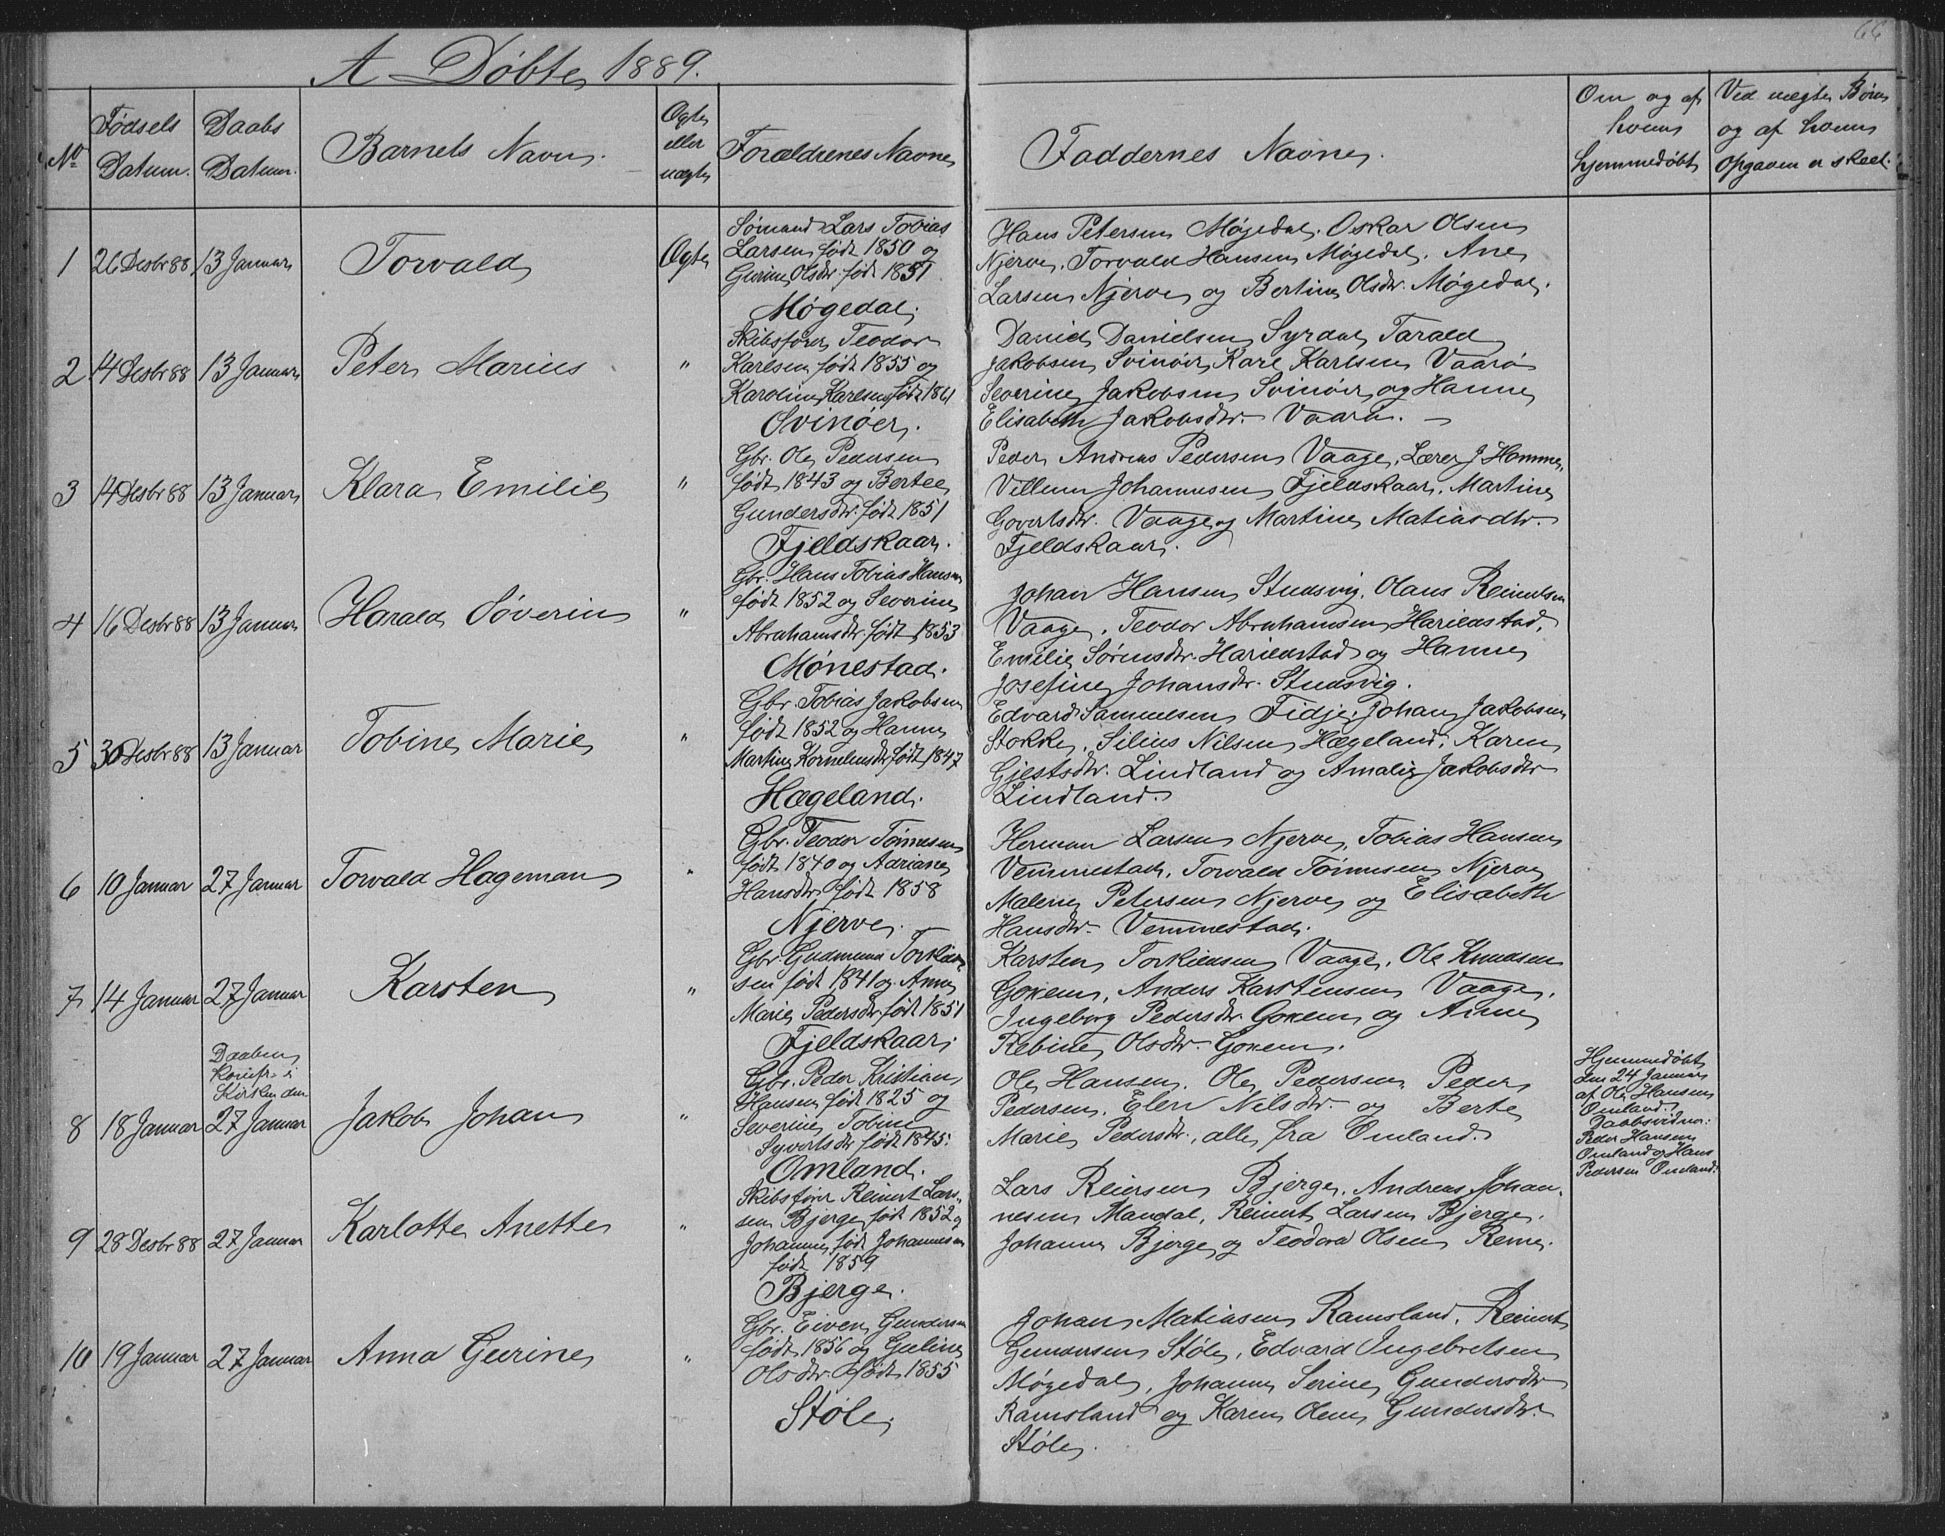 66
A Døbte 1889.
No
Fødsels Datum.
Daabs Datum.
Barnets Navn.
Ægte eller uægte
Forældrenes Navne
Faddernes Navne.
Om og af hvem hjemmedøbt
Ved uægte Børn og af hvem Opgaven er skeet.
1 26 Desbr 88 13 Januar Torvald Ægte
Sømand Lars Tobias
Larsen født 1850 og
Gurine Olsdtr. født 1851
Møgedal.
Hans Petersen Møgedal. Oskar Olsen
Njerve. Torvald Hansen Møgedal. Ane
Larsen Njerve og Bertine Olsdtr. Møgedal.
2 14 Desbr 88 13 Januar Peter Marius "
Skibsfører Teodor
Karlsen født 1855 og
Karoline Karlsen født 1861
Svinøer.
David Danielsen Syrdal Tarald
Jakobsen Svinøer, Karl Karlsen Vaarø
Severine Jakobsen Svinøer og Hanne
Elisabeth Jakobsdtr. Vaarø. –
3 14 Desbr 88 13 Januar Klara Emilie "
Gbr. Ole Pedersen
født 1843 og Bertee
Gundersdtr. født 1851
Fjeldskaar.
Peder Andreas Pedersen Vaage, Lærer J. Hamme,
Villum Johannesen Fjeldskaar. Martine
Govertsdtr. Vaage og Martine Matiasdtr.
Fjeldskaar.
4 16 Desbr 88 13 Januar Harald Søverin "
Gbr. Hans Tobias Hansen
født 1852 og Severine
Abrahamsdtr. født 1853
Mønestad.
Johan Hansen Studsvig, Olaus Reinertsen
Vaage, Teodor Abrahamsen Harienstad,
Emilie Sørensdtr. Harienstad og Hanne
Josefine Johansdtr. Studsvig.
5 30 Desbr 88 13 Januar Tobine Marie "
Gbr. Tobias Jakobsen
født 1852 og Hanne
Martine Kornelusdtr. født 1847
Hægeland.
Edvard Samuelsen Fidje, Johan Jakobsen
Stokke, Silius Nilsen Hægeland, Karen
Gjestsdtr. Lindland og Amalie Jakobsdtr
Lindland.
6 10 Januar 27 Januar Torvald Hageman "
Gbr. Teodor Tønnesen
født 1840 og Adriane
Hansdtr. født 1858
Njerve.
Herman Larsen Njerve, Tobias Hansen
Vemmestad, Torvald Tønnesen Njerve
Malene Petersen Njerve og Elisabeth
Hansdtr. Vemmestad.
7 14 Januar 27 Januar Karsten "
Gbr. Gudmund Torkild-
sen født 1841 og Anne
Marie Pedersdtr. født 1851
Fjeldskaar.
Karsten Torkildsen Vaage, Ole Knudsen
Goxem, Anders Karstensen Vaage,
Ingeborg Pedersdtr. Goxem og Anne
Rebine Olsdtr. Goxem.
Daaben
konfr. i
Kirken den
8 18 Januar 27 Januar Jakob Johan "
Gbr. Peder Kristian
Hansen født 1825 og
Severine Tobine
Syvertsdtr født 1845.
Omland.
Ole Hansen, Ole Pedersen, Peder
Pedersen, Elen Nilsdtr. og Berte
Marie Pedersdtr., alle fra Omland.
Hjemmedøbt
den 24 Januar
af Ole Hansen
Omland.
Daabsvidner:
Peder Hansen
Omland og Hans
Pedersen Omland.
9 28 Desbr 88 27 Januar Karlotte Anette "
Skibsfører Reinert Lar-
sen Bjerge født 1852 og
Johanne født Johannesen
født 1859
Bjerge.
Lars Reiersen Bjerge, Andreas Johan-
nesen Mandal, Reinert Larsen Bjerge.
Johanne Bjerge og Teodora Olsen Reme.
10 19 Januar 27 Januar Anna Gurine "
Gbr. Eiven Gundersen
født 1856 og Guline
Olsdtr. født 1855
Støle.
Johan Matiasen Ramsland, Reinert
Gundersen Støle, Edvard Ingebretsen
Møgedal, Johanne Serine Gundersdtr
Ramsland og Karen Olene Gundersdtr.
Støle.